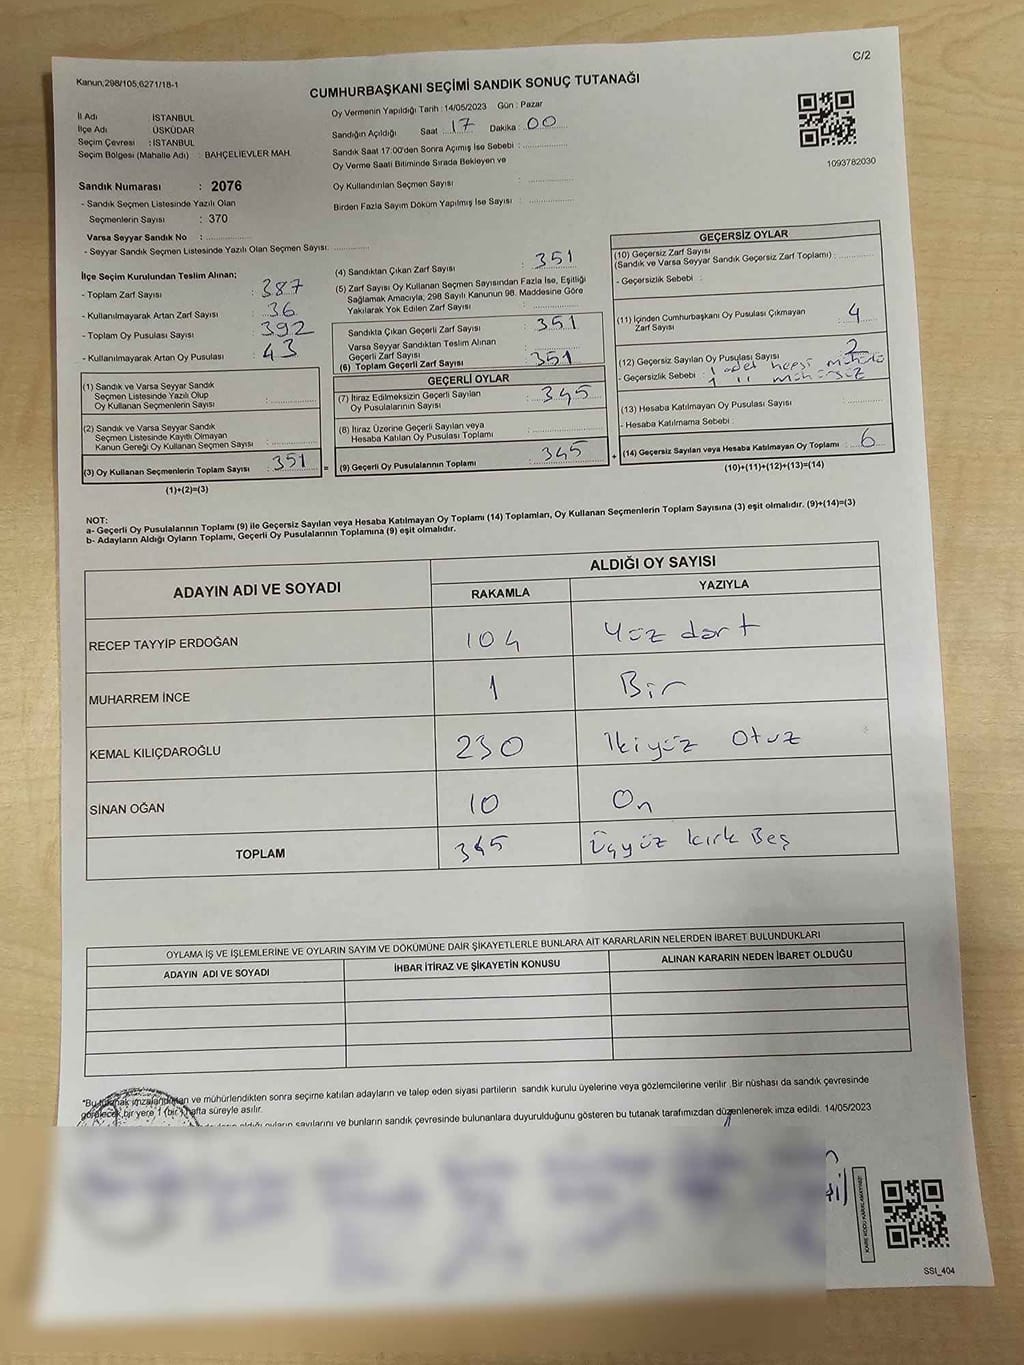 C/2
Kanun,298/105,6271/18-1
CUMHURBAŞKANI SEÇİMİ SANDIK SONUÇ TUTANAĞI
İl Adı İSTANBUL
İlçe Adı ÜSKÜDAR
Seçim Çevresi : İSTANBUL
Seçim Bölgesi (Mahalle Adı) : BAHÇELİEVLER MAH.
Sandık Numarası : 2076
- Sandık Seçmen Listesinde Yazılı Olan
Seçmenlerin Sayısı : 370
Varsa Seyyar Sandık No :
- Seyyar Sandık Seçmen Listesinde Yazılı Olan Seçmen Sayısı:
Oy Vermenin Yapıldığı Tarih : 14/05/2023 Gün : Pazar
Sandığın Açıldığı Saat 17 Dakika : 00
Sandık Saat 17:00'den Sonra Açımış İse Sebebi :
Oy Verme Saati Bitiminde Sırada Bekleyen ve
Oy Kullandırılan Seçmen Sayısı :
Birden Fazla Sayım Döküm Yapılmış İse Sayısı :
1093782030
İlçe Seçim Kurulundan Teslim Alınan;
- Toplam Zarf Sayısı : 387
- Kullanılmayarak Artan Zarf Sayısı : 36
- Toplam Oy Pusulası Sayısı : 392
- Kullanılmayarak Artan Oy Pusulası : 43
(1) Sandık ve Varsa Seyyar Sandık
Seçmen Listesinde Yazılı Olup
Oy Kullanan Seçmenlerin Sayısı :
(2) Sandık ve Varsa Seyyar Sandık
Seçmen Listesinde Kayıtlı Olmayan
Kanun Gereği Oy Kullanan Seçmen Sayısı :
(3) Oy Kullanan Seçmenlerin Toplam Sayısı : 351 =
(1)+(2)=(3)
(4) Sandıktan Çıkan Zarf Sayısı : 351
(5) Zarf Sayısı Oy Kullanan Seçmen Sayısından Fazla İse, Eşitliği
Sağlamak Amacıyla, 298 Sayılı Kanunun 98. Maddesine Göre
Yakılarak Yok Edilen Zarf Sayısı :
Sandıkta Çıkan Geçerli Zarf Sayısı : 351
Varsa Seyyar Sandıktan Teslim Alınan
Geçerli Zarf Sayısı :
(6) Toplam Geçerli Zarf Sayısı : 351
GEÇERLİ OYLAR
(7) İtiraz Edilmeksizin Geçerli Sayılan
Oy Pusulasının Sayısı : 345
(8) İtiraz Üzerine Geçerli Sayılan veya
Hesaba Katılan Oy Pusulası Toplamı :
(9) Geçerli Oy Pusulalarının Toplamı : 345 +
GEÇERSİZ OYLAR
(10) Geçersiz Zarf Sayısı
(Sandık ve Varsa Seyyar Sandık Geçersiz Zarf Toplamı) :
- Geçersizlik Sebebi :
(11) İçinden Cumhurbaşkanı Oy Pusulası Çıkmayan
Zarf Sayısı : 4
(12) Geçersiz Sayılan Oy Pusulası Sayısı : 2
- Geçersizlik Sebebi : 1 adet hepsi mühürlü
1 " mühürsüz
(13) Hesaba Katılmayan Oy Pusulası Sayısı :
- Hesaba Katılmama Sebebi :
(14) Geçersiz Sayılan veya Hesaba Katılmayan Oy Toplamı : 6
(10)+(11)+(12)+(13)=(14)
NOT:
a- Geçerli Oy Pusulalarının Toplamı (9) ile Geçersiz Sayılan veya Hesaba Katılmayan Oy Toplamı (14) Toplamları, Oy Kullanan Seçmenlerin Toplam Sayısına (3) eşit olmalıdır. (9)+(14)=(3)
b- Adayların Aldığı Oyların Toplamı, Geçerli Oy Pusulalarının Toplamına (9) eşit olmalıdır.
ADAYIN ADI VE SOYADI
ALDIĞI OY SAYISI
RAKAMLA YAZIYLA
RECEP TAYYİP ERDOĞAN 104 Yüz dört
MUHARREM İNCE 1 Bir
KEMAL KILIÇDAROĞLU 230 İkiyüz Otuz
SİNAN OĞAN 10 On
TOPLAM 345 Üçyüz kırk Beş
OYLAMA İŞ VE İŞLEMLERİNE VE OYLARIN SAYIM VE DÖKÜMÜNE DAİR ŞİKAYETLERLE BUNLARA AİT KARARLARIN NELERDEN İBARET BULUNDUKLARI
ADAYIN ADI VE SOYADI İHBAR İTİRAZ VE ŞİKAYETİN KONUSU ALINAN KARARIN NEDEN İBARET OLDUĞU
*Bu tutanak imzalandıktan ve mühürlendikten sonra seçime katılan adayların ve talep eden siyasi partilerin sandık kurulu üyelerine veya gözlemcilerine verilir .Bir nüshası da sandık çevresinde
görülecek bir yere 1 (bir) hafta süreyle asılır.
aldığı oyların sayılarını ve bunların sandık çevresinde bulunanlara duyurulduğunu gösteren bu tutanak tarafımızdan düzenlenerek imza edildi. 14/05/2023
KARE KODU KARALAMAYINIZ!
SSI_404